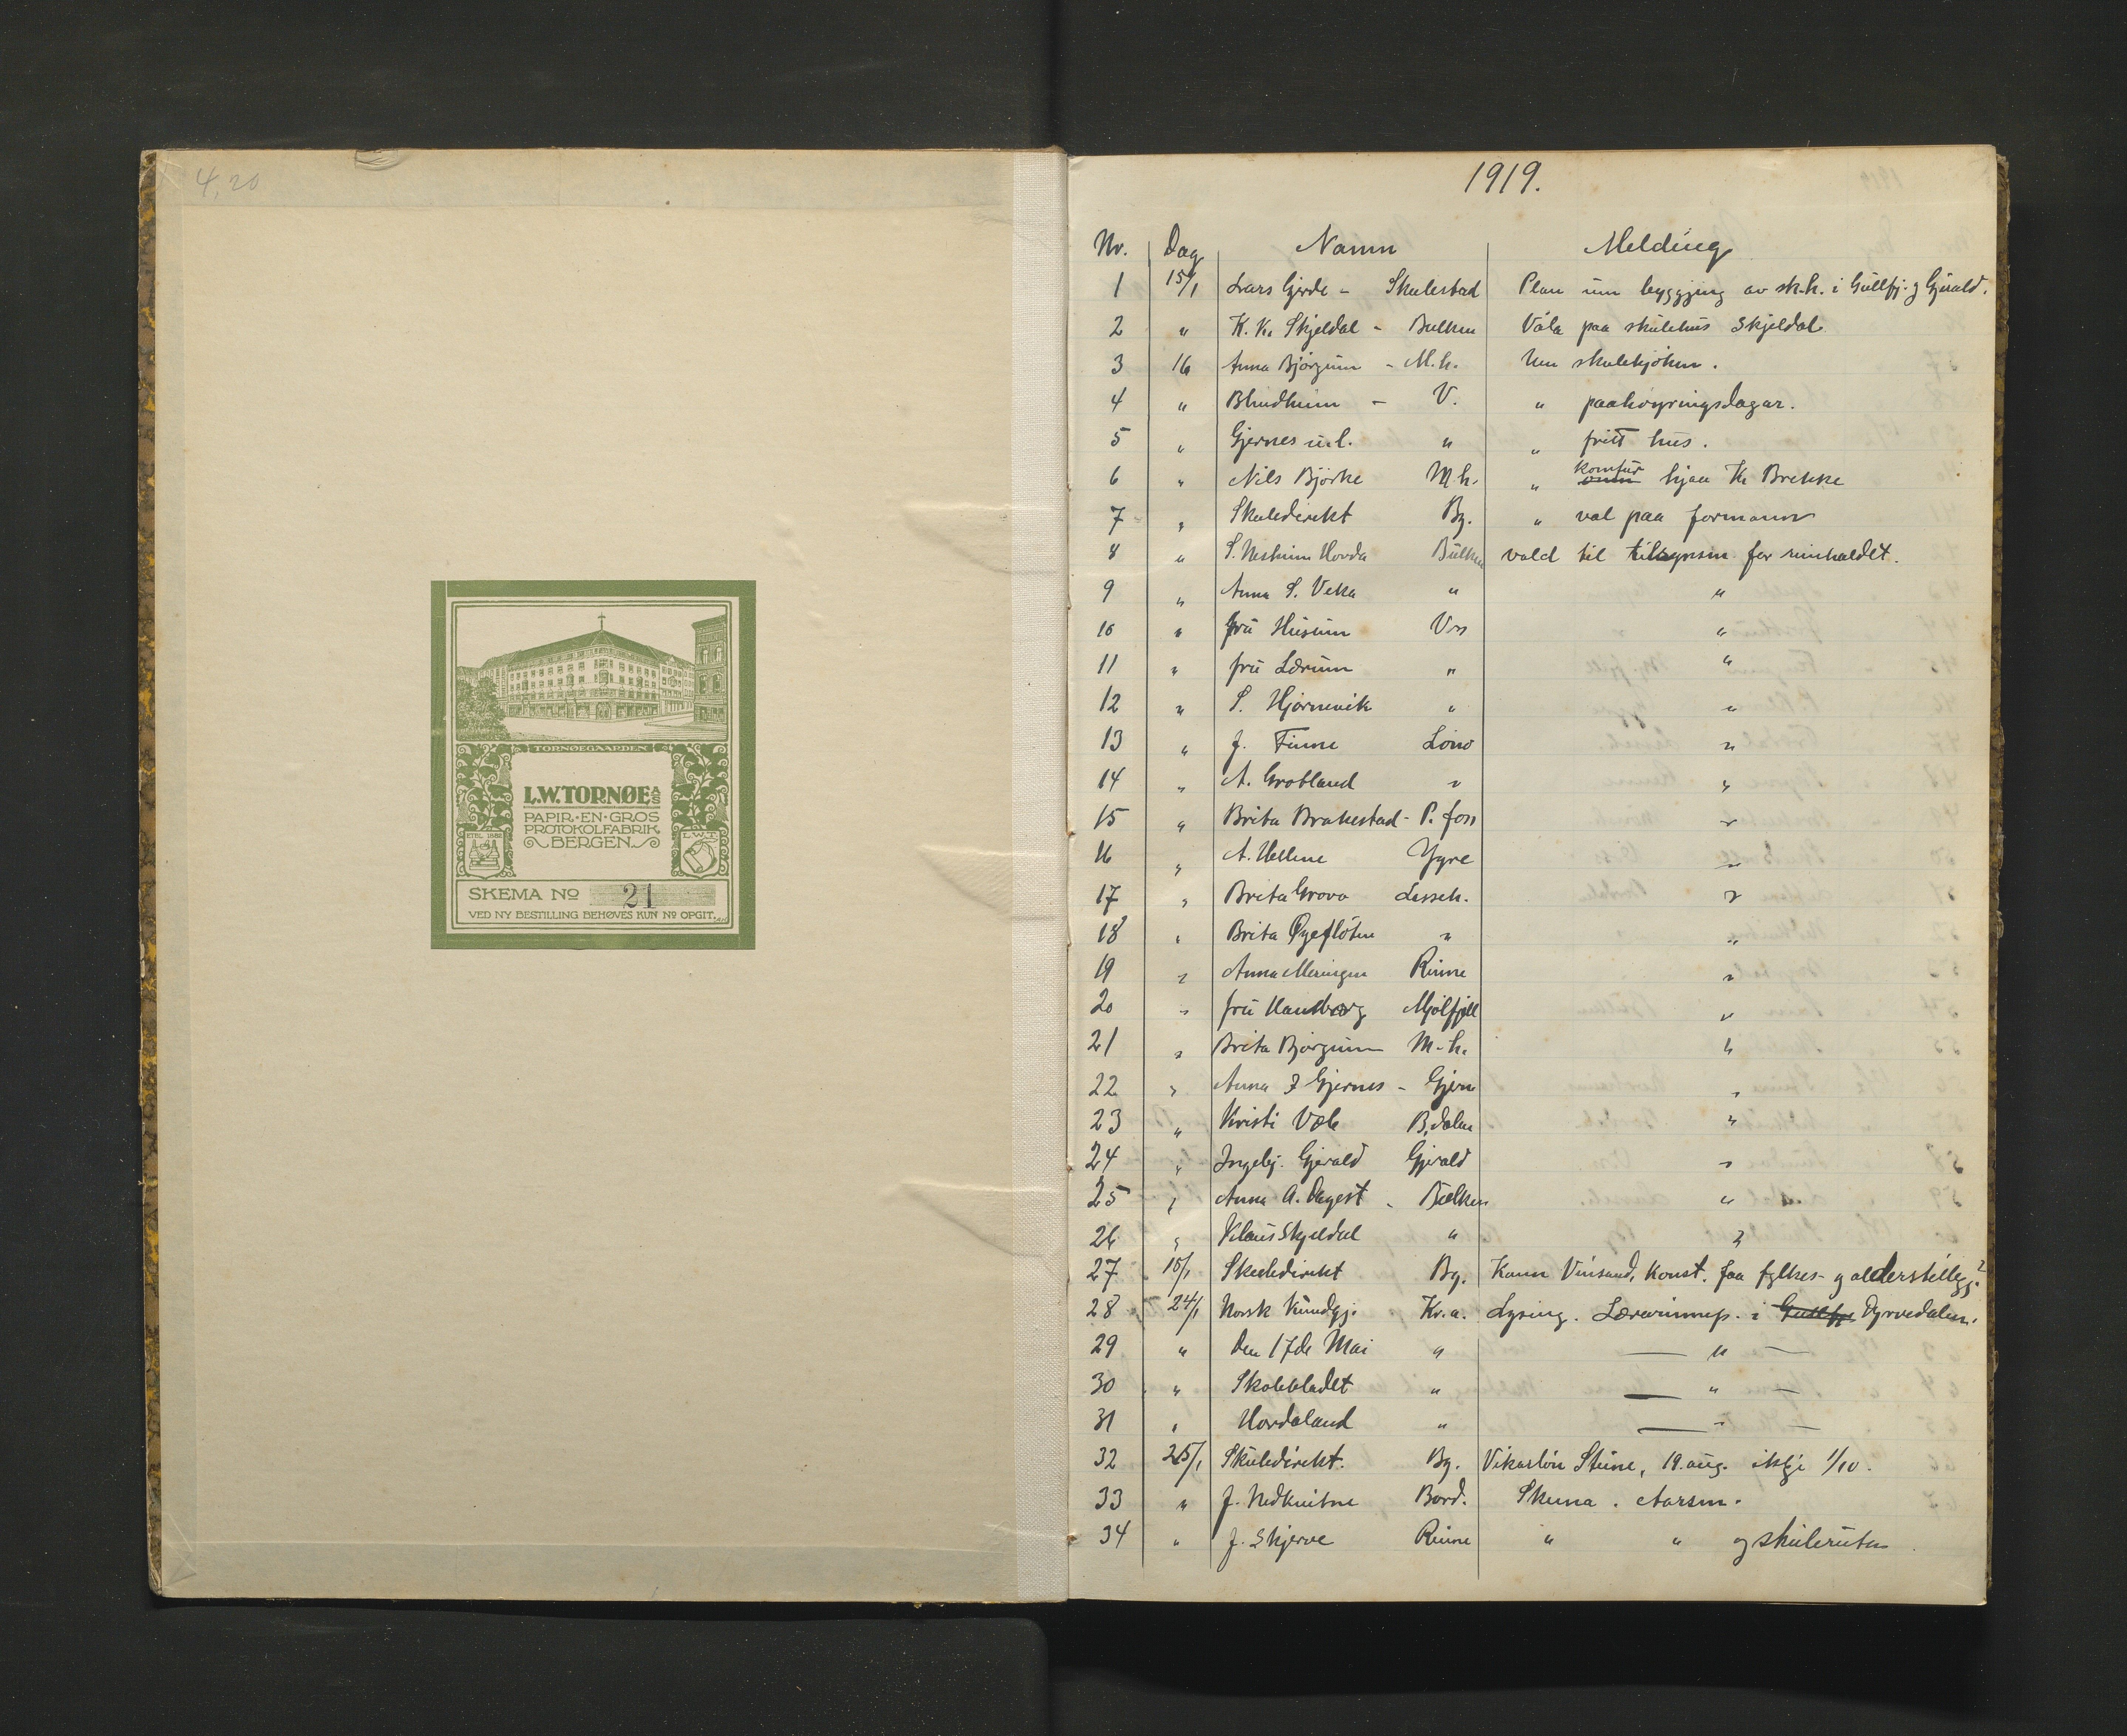 4,20
TORNØEGAARDEN
L.W. TORNØE A/S
PAPIR·EN·GROS
PROTOKOLFABRIK
BERGEN
ETBL. 1882
L.W.T.
SKEMA No 21
VED NY BESTILLING BEHØVES KUN No OPGIT.
1919.
Nr. Dag Namn Melding
1 15/1 Lars Gjerde - Skulestad Plan um byggjing av sk.h. i Gullfj. og Gjerald.
2 " K. K. Skjeldal - Bulken Våla paa skulehus Skjeldal
3 16 Anna Bjørgum - M.h. Um skulekjøken.
4 " Blindheim - V. " paahøyringsdagar.
5 " Gjernes u.l. " " fritt hus.
6 " Nils Bjørke M.h. " komfur hjaa K. Brekke
7 " Skuledirekt Bg. " val paa formann
8 " S. Nesheim Horda Bulken vald til tilsynsm for reinhaldet.
9 " Anna S. Veka " "
10 " fru Husum Vss "
11 " fru Lærum " "
12 " S. Hjørnevik " "
13 " J. Finne Löno "
14 " A. Grotland " "
15 " Brita Brakestad - P. foss "
16 " A. Hellene Ygre "
17 " Brita Grovo Lissch. "
18 " Brita Øyeflöten " "
19 " Anna Meringen Rinne "
20 " fru Hamborg Mjölfjell "
21 " Brita Bjørgum M.h. "
22 " Anna J Gjernes - Gjern "
23 " Kristi Væle B.dalen "
24 " Ingebj. Gjerald Gjerald "
25 " Anna A. Dagest - Bulken "
26 " Klaus Skjeldal " "
27 18/1 Skuledirekt Bg. Kann Vinsand, Konst. faa fylkes- og alderstillegg?
28 24/1 Norsk Kundgj. Kr.a. Lysing. Lærarinnep. i Gullfj. Dyrvedalen.
29 " Den 17de Mai " — " —
30 " Skolebladet " — " —
31 " Hordaland " — " —
32 25/1 Skuledirekt. Bg. Vikarløn Steine, 19. aug. ikkje 1/10.
33 " J. Nedkvitne Bord. Skema. Aarsm.
34 " J. Skjerve Rinne " " og skuleruten